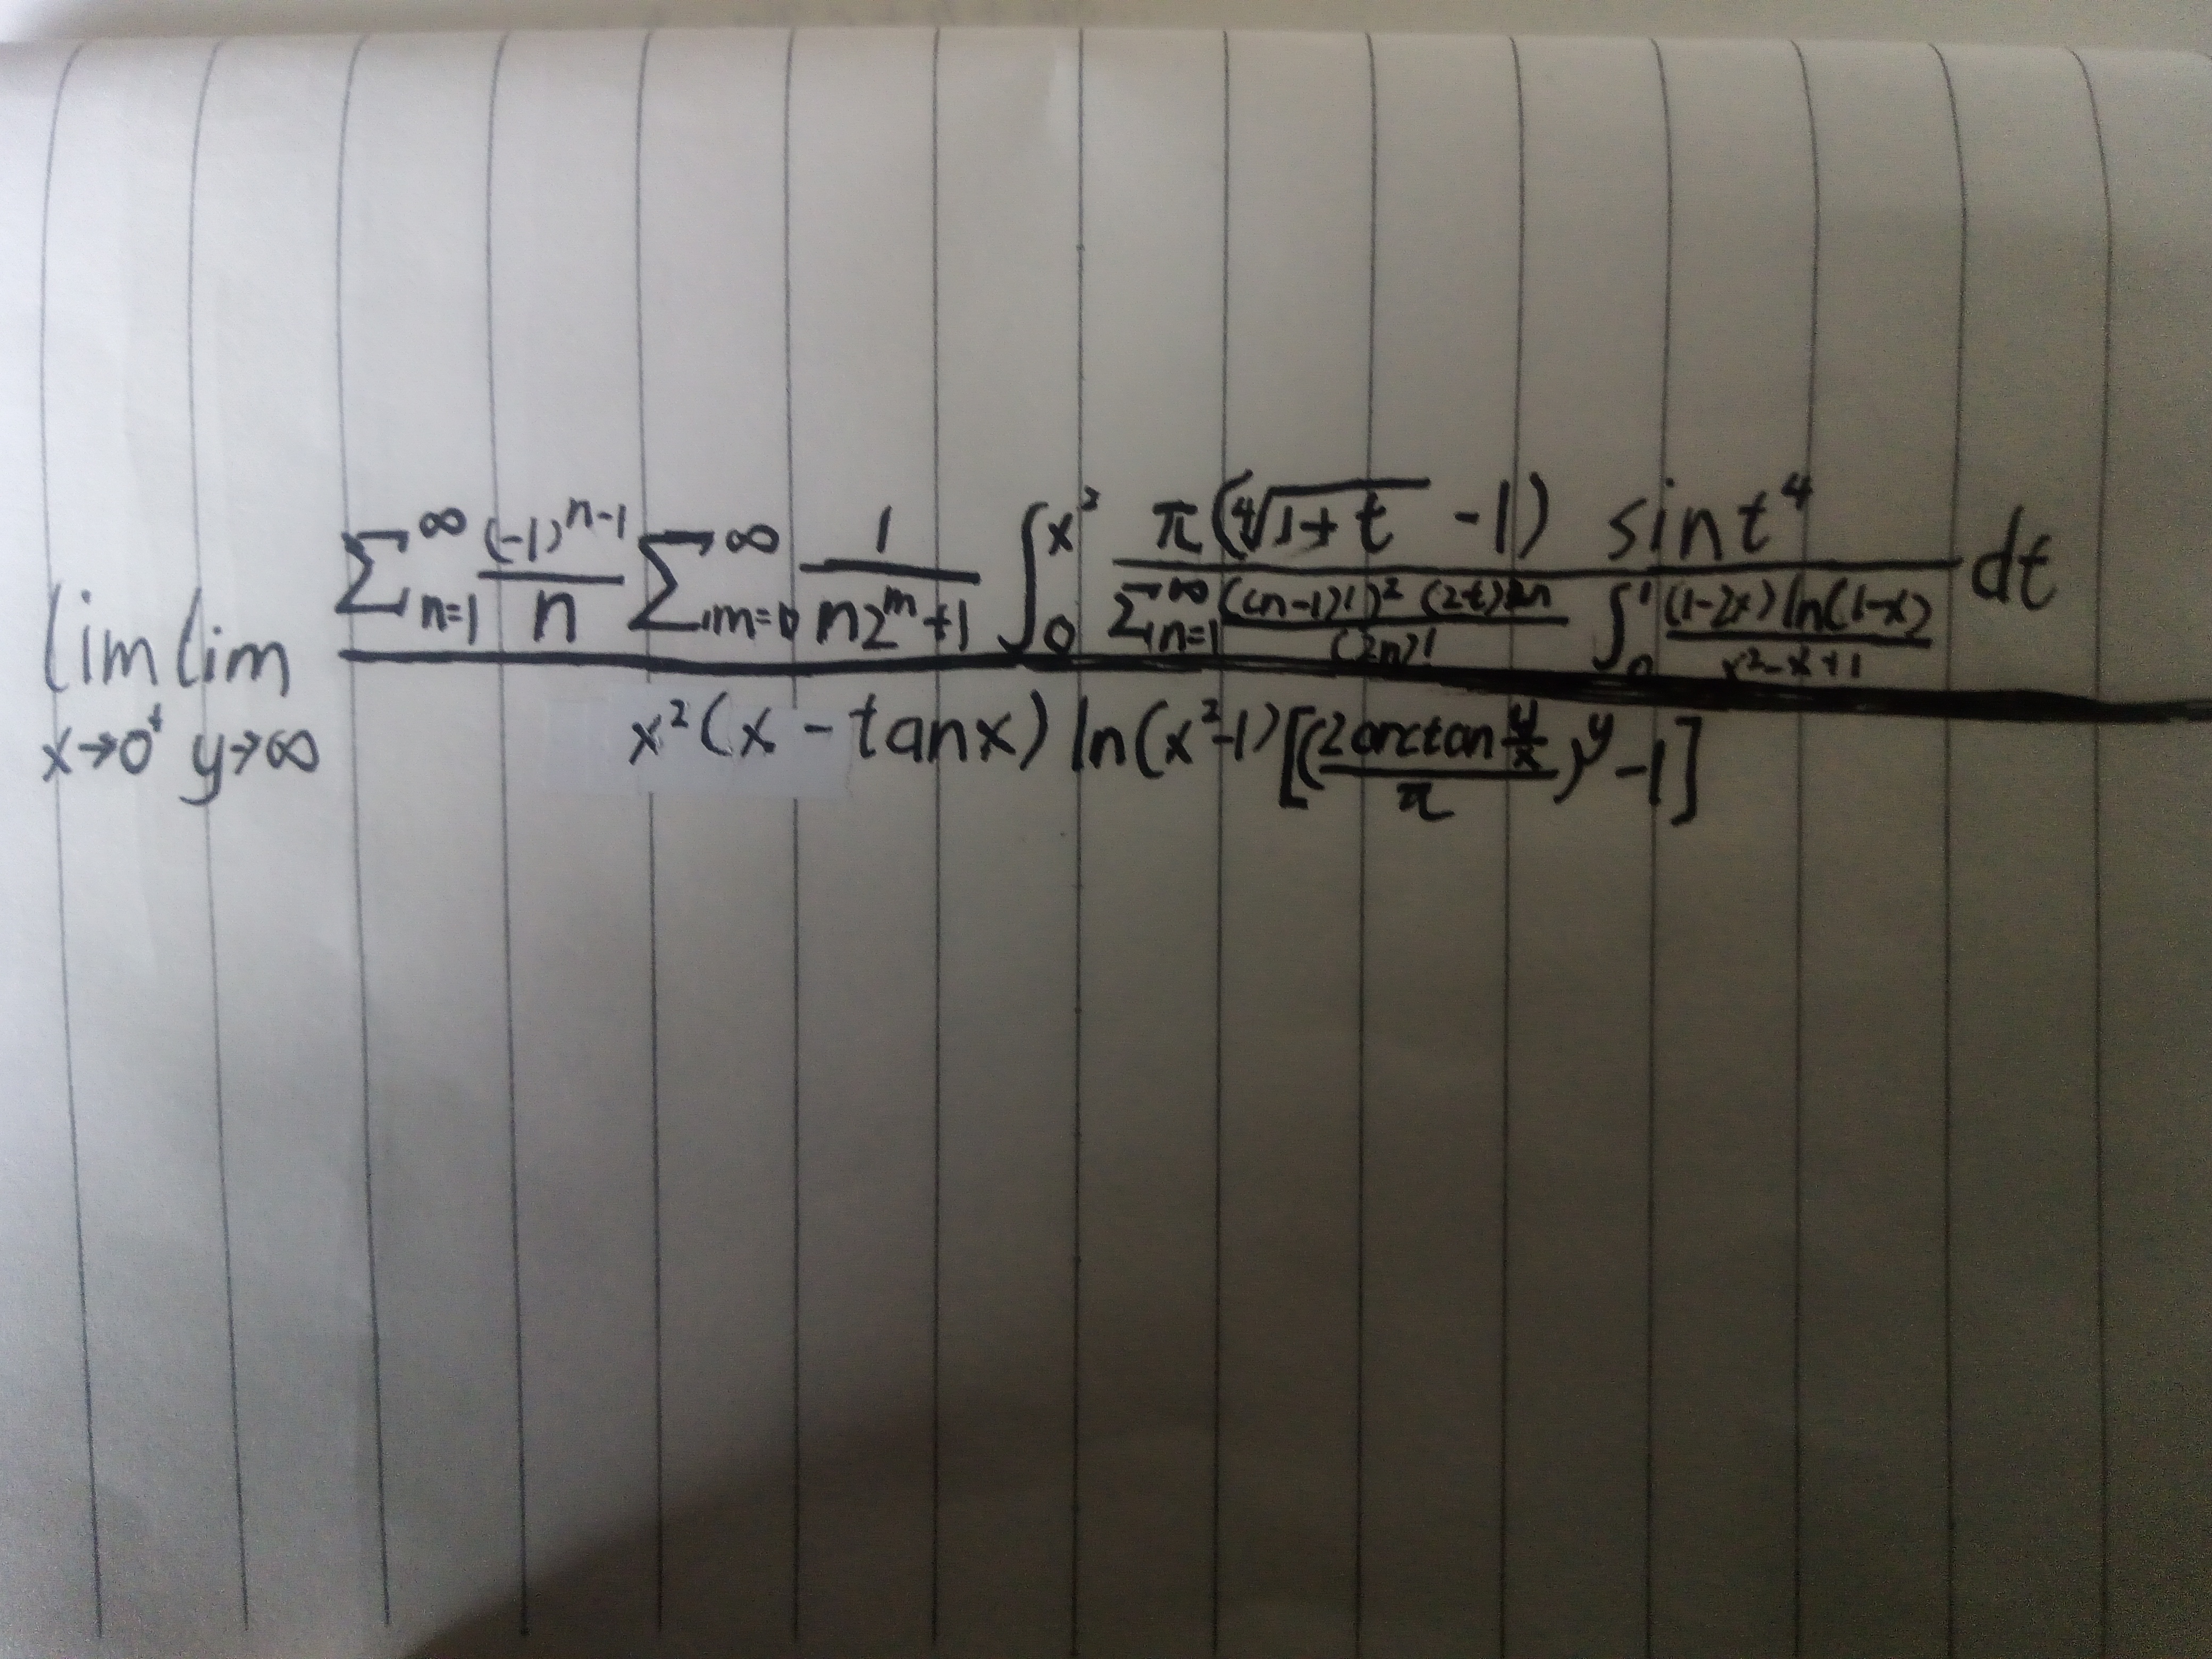 \lim_{x \to 0^+} \lim_{y \to \infty} \frac{\sum_{n=1}^{\infty} \frac{(-1)^{n-1}}{n} \sum_{m=0}^{\infty} \frac{1}{n2^m+1} \int_0^{x^2} \frac{\pi(\sqrt[4]{1+t}-1) \sin t^4}{\sum_{n=1}^{\infty} \frac{((n-1)!)^2 (2t)^{2n}}{(2n)!} \int_0^1 \frac{(1-2x)\ln(1-x)}{x^2-x+1}} dt}{x^2(x-\tan x) \ln(x^2-1) [(\frac{2\arctan\frac{y}{x}}{\pi})^y-1]}